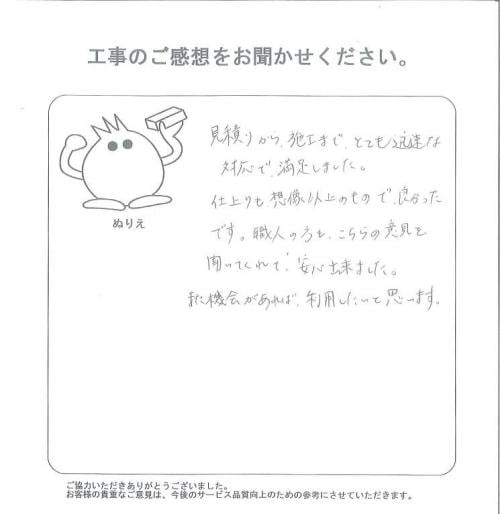 工事のご感想をお聞かせください。
ぬりえ
見積りから、施工まで、とても迅速な
対応で、満足しました。
仕上りも、想像以上のもので、良かった
です。職人の方も、こちらの意見を
聞いてくれて、安心出来ました。
また機会があれば、利用したいと思います。
ご協力いただきありがとうございました。
お客様の貴重なご意見は、今後のサービス品質向上のための参考にさせていただきます。